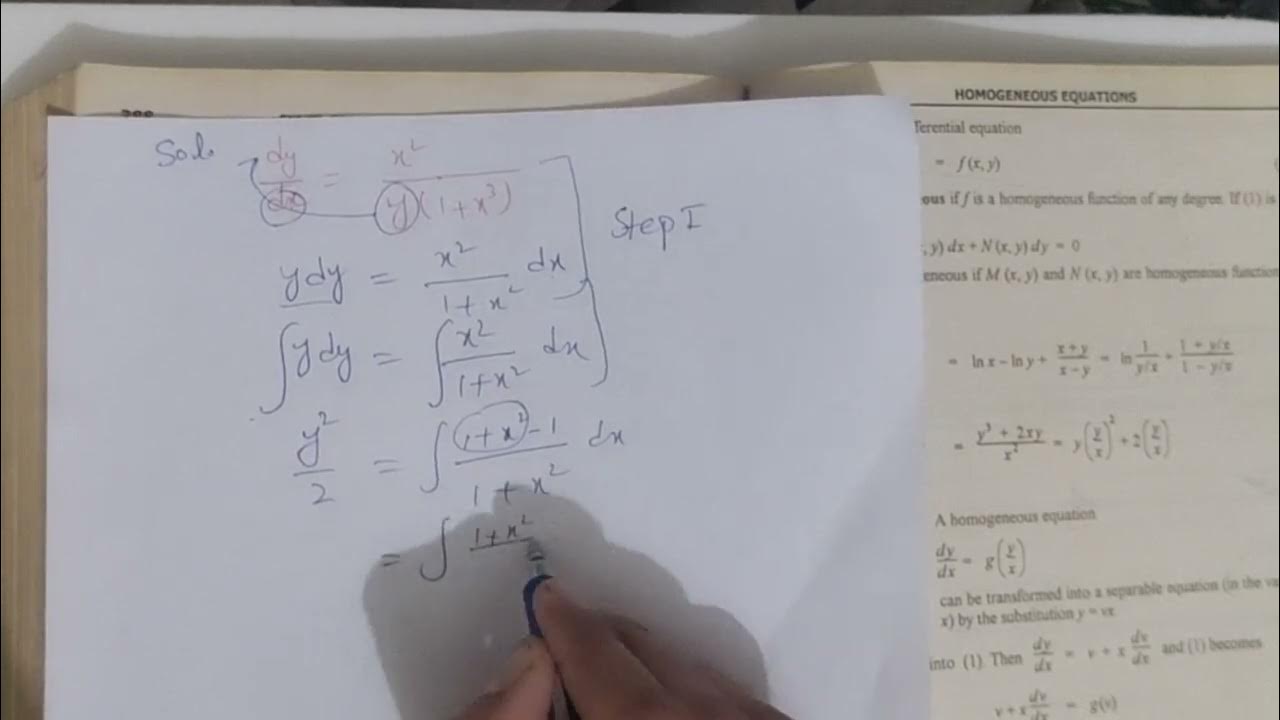 Sol.
dy/dx = x²/y(1+x³)
Step I
y dy = x²/1+x² dx
∫ y dy = ∫ x²/1+x² dx
y²/2 = ∫ 1+x²-1/1+x² dx
= ∫ 1+x²
HOMOGENEOUS EQUATIONS
ferential equation
= f(x, y)
ous if f is a homogeneous function of any degree. If (1) is
, y) dx + N (x, y) dy = 0
eneous if M (x, y) and N (x, y) are homogeneous function
= ln x – ln y + x+y/x–y = ln 1/y/x + 1 + y/x/1 – y/x
= y³ + 2xy/x² = y(y/x)² + 2(y/x)
A homogeneous equation
dy/dx = g(y/x)
can be transformed into a separable equation (in the va
x) by the substitution y = vx
into (1). Then dy/dx = v + x dv/dx and (1) becomes
v + x dv/dx = g(v)